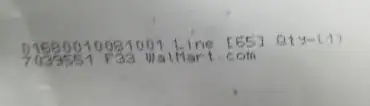 01580010081001 Line [65] Qty-(1)
7039551 F33 WalMart.com